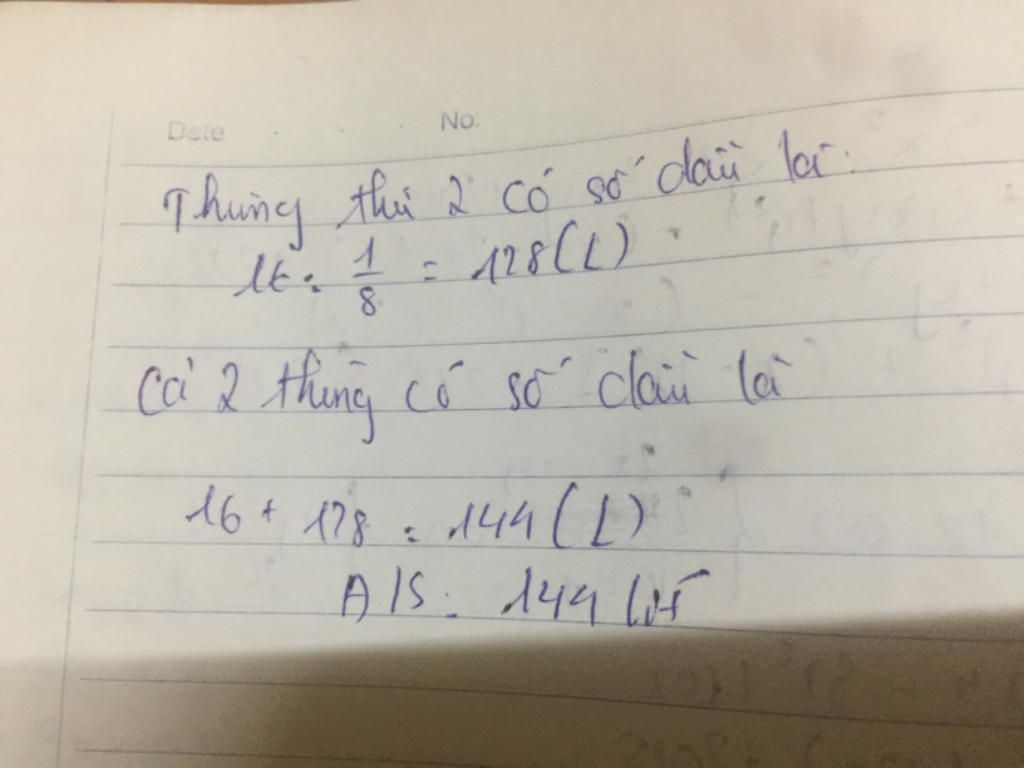 Date No.
Thùng thứ 2 có số dầu là:
16 : 1/8 = 128 (L)
Cả 2 thùng có số dầu là
16 + 128 = 144 (L)
Đ/S: 144 lít